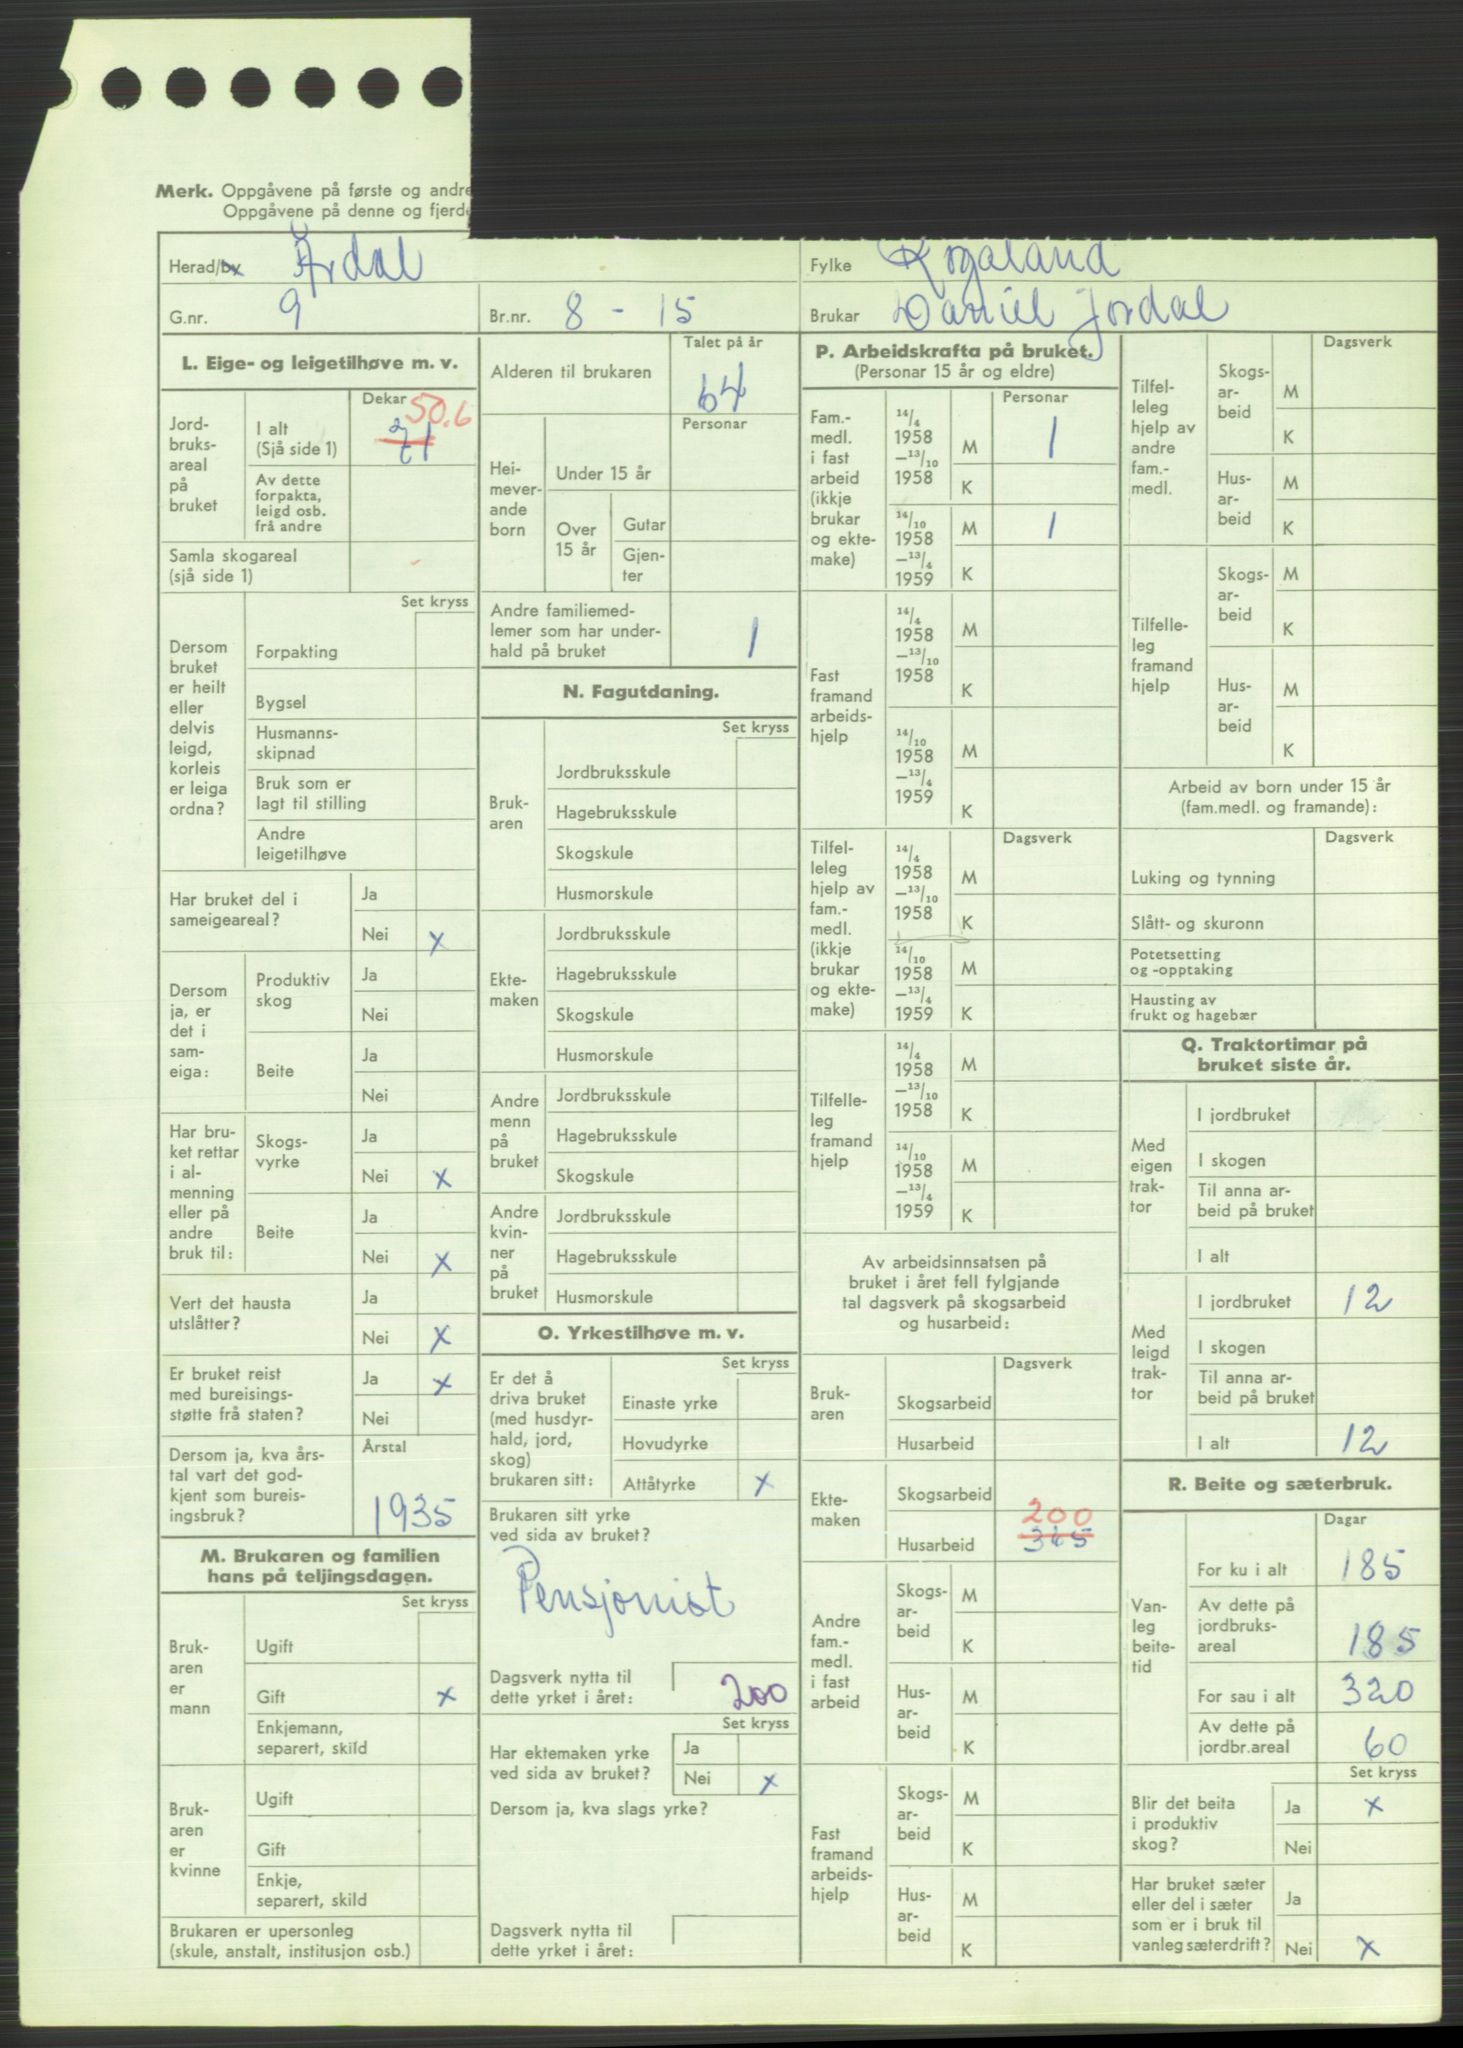 Merk. Oppgåvene på første og andre
Oppgåvene på denne og fjerde
Herad/by Årdal
Fylke Rogaland
G.nr. 9
Br.nr. 8 - 15
Brukar Daniel Jordal
L. Eige- og leigetilhøve m. v.
Jord-
bruks-
areal
på
bruket
Dekar
I alt
(Sjå side 1)
50.6
71
Av dette
forpakta,
leigd osb.
frå andre
Samla skogareal
(sjå side 1)
Set kryss
Dersom
bruket
er heilt
eller
delvis
leigd,
korleis
er leiga
ordna?
Forpakting
Bygsel
Husmanns-
skipnad
Bruk som er
lagt til stilling
Andre
leigetilhøve
Har bruket del i
sameigeareal?
Ja
Nei x
Dersom
ja, er
det i
sam-
eiga:
Produktiv
skog
Ja
Nei
Beite
Ja
Nei
Har bru-
ket rettar
i al-
menning
eller på
andre
bruk til:
Skogs-
vyrke
Ja
Nei x
Beite
Ja
Nei x
Vert det hausta
utslåtter?
Ja
Nei x
Er bruket reist
med bureisings-
støtte frå staten?
Ja x
Nei
Dersom ja, kva års-
tal vart det god-
kjent som bureis-
ingsbruk?
Årstal
1935
M. Brukaren og familien
hans på teljingsdagen.
Set kryss
Bruk-
aren
er
mann
Ugift
Gift x
Enkjemann,
separert, skild
Bruk-
aren
er
kvinne
Ugift
Gift
Enkje,
separert, skild
Brukaren er upersonleg
(skule, anstalt, institusjon osb.)
Talet på år
Alderen til brukaren 64
Personar
Hei-
mever-
ande
born
Under 15 år
Over
15 år
Gutar
Gjen-
ter
Andre familiemed-
lemer som har under-
hald på bruket
1
N. Fagutdaning.
Set kryss
Bruk-
aren
Jordbruksskule
Hagebruksskule
Skogskule
Husmorskule
Ekte-
maken
Jordbruksskule
Hagebruksskule
Skogskule
Husmorskule
Andre
menn
på
bruket
Jordbruksskule
Hagebruksskule
Skogskule
Andre
kvin-
ner
på
bruket
Jordbruksskule
Hagebruksskule
Husmorskule
O. Yrkestilhøve m. v.
Set kryss
Er det å
driva bruket
(med husdyr-
hald, jord,
skog)
brukaren sitt:
Einaste yrke
Hovudyrke
Attåtyrke x
Brukaren sitt yrke
ved sida av bruket?
Pensjonist
Dagsverk nytta til
dette yrket i året:
200
Set kryss
Har ektemaken yrke
ved sida av bruket?
Ja
Nei x
Dersom ja, kva slags yrke?
Dagsverk nytta til
dette yrket i året:
P. Arbeidskrafta på bruket.
(Personar 15 år og eldre)
Personar
Fam.-
medl.
i fast
arbeid
(ikkje
brukar
og ekte-
make)
14/4
1958
—13/10
1958
M 1
K
14/10
1958
—13/4
1959
M 1
K
Fast
framand
arbeids-
hjelp
14/4
1958
—13/10
1958
M
K
14/10
1958
—13/4
1959
M
K
Dagsverk
Tilfel-
leleg
hjelp av
fam.-
medl.
(ikkje
brukar
og ekte-
make)
14/4
1958
—13/10
1958
M
K
14/10
1958
—13/4
1959
M
K
Tilfelle-
leg
framand
hjelp
14/4
1958
—13/10
1958
M
K
14/10
1958
—13/4
1959
M
K
Av arbeidsinnsatsen på
bruket i året fell fylgjande
tal dagsverk på skogsarbeid
og husarbeid:
Dagsverk
Bruk-
aren
Skogsarbeid
Husarbeid
Ekte-
maken
Skogsarbeid
200
Husarbeid 365
Andre
fam.-
medl.
i fast
arbeid
Skogs-
ar-
beid
M
K
Hus-
ar-
beid
M
K
Fast
framand
arbeids-
hjelp
Skogs-
ar-
beid
M
K
Hus-
ar-
beid
M
K
Dagsverk
Tilfel-
leleg
hjelp av
andre
fam.-
medl.
Skogs-
ar-
beid
M
K
Hus-
ar-
beid
M
K
Tilfelle-
leg
framand
hjelp
Skogs-
ar-
beid
M
K
Hus-
ar-
beid
M
K
Arbeid av born under 15 år
(fam.medl. og framande):
Dagsverk
Luking og tynning
Slått- og skuronn
Potetsetting
og -opptaking
Hausting av
frukt og hagebær
Q. Traktortimar på
bruket siste år.
Med
eigen
trak-
tor
I jordbruket
I skogen
Til anna ar-
beid på bruket
I alt
Med
leigd
trak-
tor
I jordbruket 12
I skogen
Til anna ar-
beid på bruket
I alt 12
R. Beite og sæterbruk.
Dagar
Van-
leg
beite-
tid
For ku i alt 185
Av dette på
jordbruks-
areal 185
For sau i alt 320
Av dette på
jordbr.areal 60
Set kryss
Blir det beita
i produktiv
skog?
Ja x
Nei
Har bruket sæter
eller del i sæter
som er i bruk til
vanleg sæterdrift?
Ja
Nei x